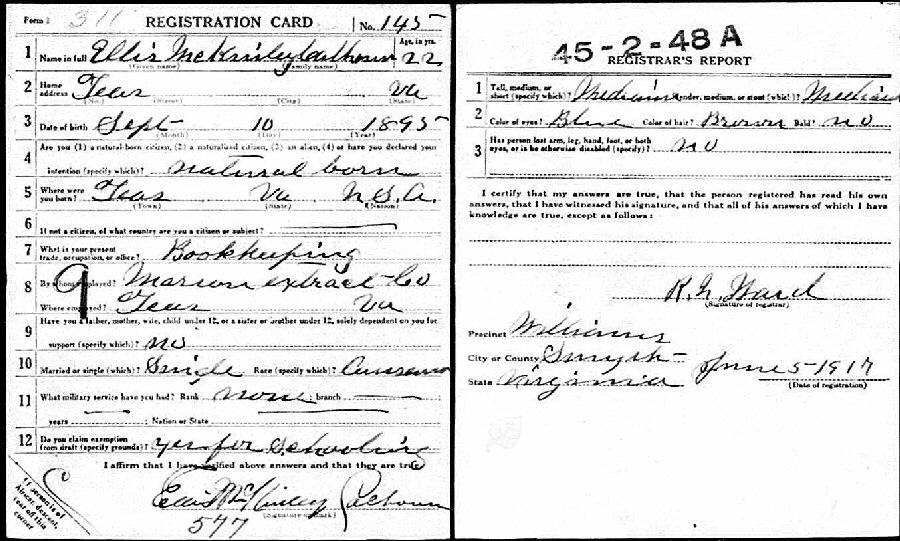 Form 1 311 REGISTRATION CARD No. 145
1 Name in full Ellis McKinley Calhoun Age, in yrs. 22
(Given name) (Family name)
2 Home address Teas Va
(No.) (Street) (City) (State)
3 Date of birth Sept 10 1895
(Month) (Day) (Year)
4 Are you (1) a natural-born citizen, (2) a naturalized citizen, (3) an alien, (4) or have you declared your
intention (specify which)? natural born
5 Where were you born? Teas Va U.S.A.
(Town) (State) (Nation)
6 If not a citizen, of what country are you a citizen or subject?
7 What is your present trade, occupation, or office? Bookkeeping
8 By whom employed? Marion extract Co
Where employed? Teas Va
9
9 Have you a father, mother, wife, child under 12, or a sister or brother under 12, solely dependent on you for
support (specify which)? no
10 Married or single (which)? Single Race (specify which)?
11 What military service have you had? Rank none ; branch
years ; Nation or State
12 Do you claim exemption from draft (specify grounds)? yes for schooling
I affirm that I have verified above answers and that they are true
Ellis McKinley Calhoun
(Signature or mark)
577
If person is of African descent, tear off this corner
45-2-48 A
REGISTRAR'S REPORT
1 Tall, medium, or short (specify which)? Medium Slender, medium, or stout (which)? Medium
2 Color of eyes? Blue Color of hair? Brown Bald? no
3 Has person lost arm, leg, hand, foot, or both eyes, or is he otherwise disabled (specify)? no
I certify that my answers are true, that the person registered has read his own
answers, that I have witnessed his signature, and that all of his answers of which I have
knowledge are true, except as follows:
Ward
(Signature of registrar)
Precinct Williams
City or County Smyth
State Virginia June 5-1917
(Date of registration)